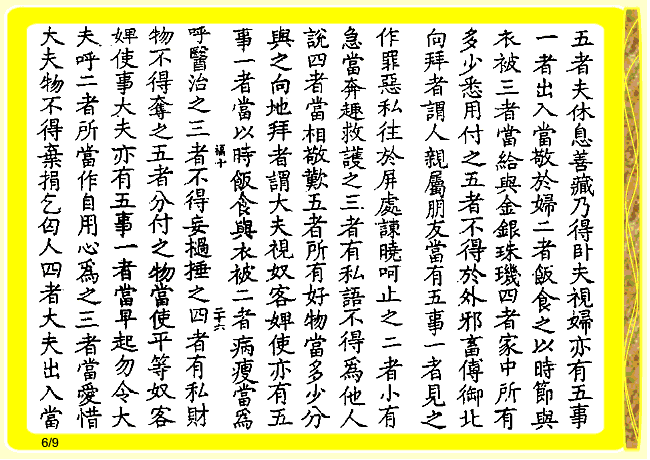 五者夫休息善藏乃得臥夫視婦亦有五事
一者出入當敬於婦二者飯食之以時節與
衣被三者當給與金銀珠璣四者家中所有
多少悉用付之五者不得於外邪畜傅御北
向拜者謂人親屬朋友當有五事一者見之
作罪惡私往於屏處諫曉呵止之二者小有
急當奔趣救護之三者有私語不得爲他人
說四者當相敬歎五者所有好物當多少分
與之向地拜者謂大夫視奴客婢使亦有五
事一者當以時飯食與衣被二者病瘦當爲
呼醫治之三者不得妄撾捶之四者有私財
二十六
物不得奪之五者分付之物當使平等奴客
婢使事大夫亦有五事一者當早起勿令大
夫呼二者所當作自用心爲之三者當愛惜
大夫物不得棄捐乞匃人四者大夫出入當
6/9